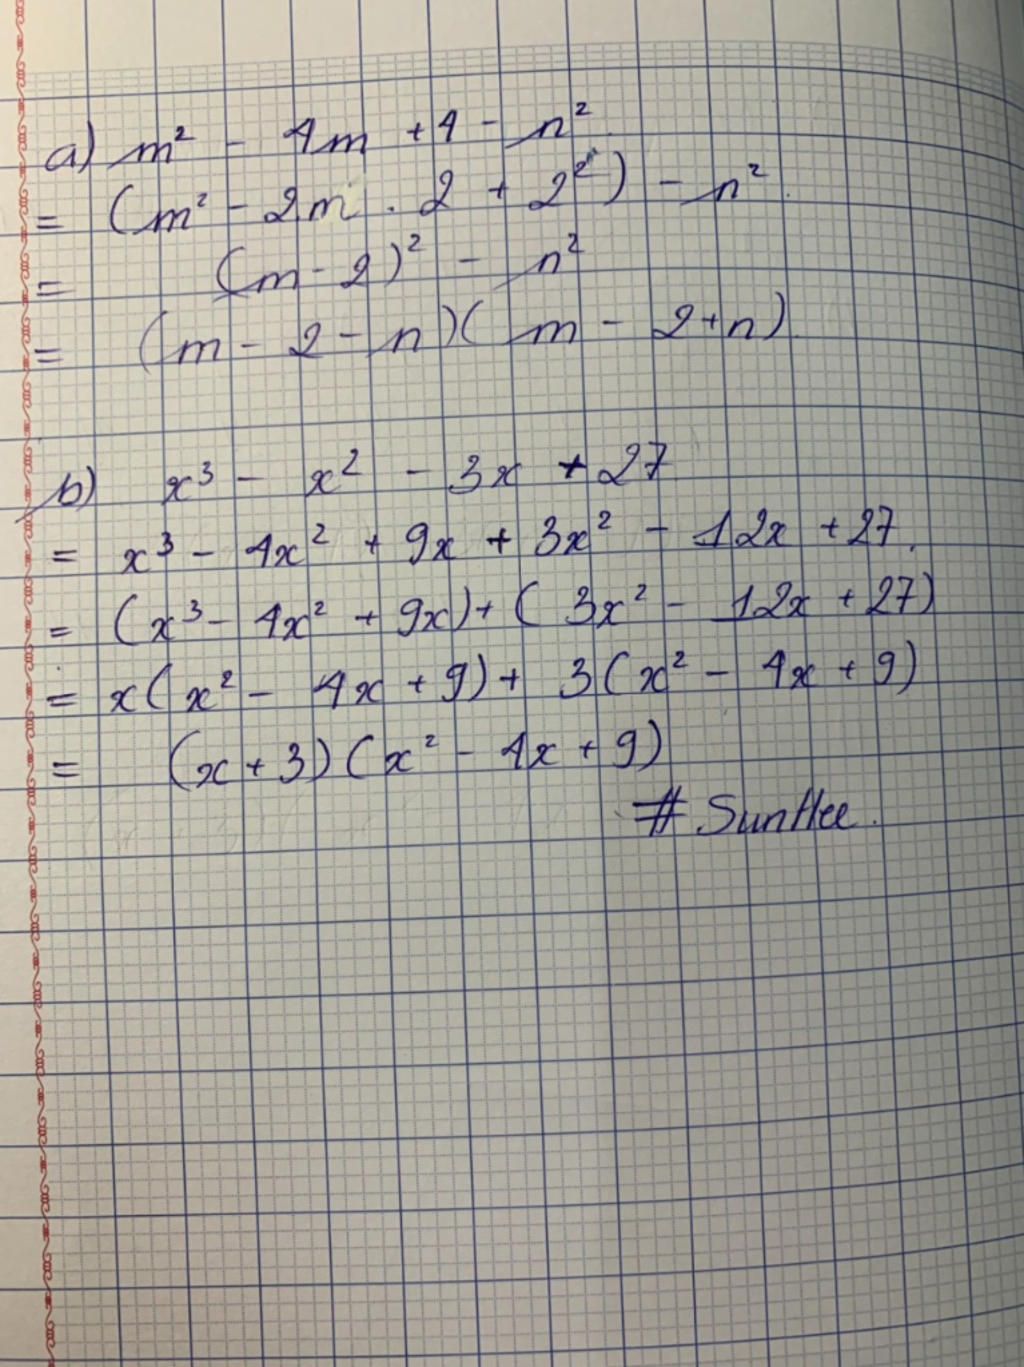 a) m² - 4m + 4 - n²
= (m² - 2m . 2 + 2²) - n².
= (m - 2)² - n²
= (m - 2 - n)(m - 2 + n).
b) x³ - x² - 3x + 27
= x³ - 4x² + 9x + 3x² - 12x + 27.
= (x³ - 4x² + 9x) + (3x² - 12x + 27)
= x(x² - 4x + 9) + 3(x² - 4x + 9)
= (x + 3)(x² - 4x + 9)
# SunHee.